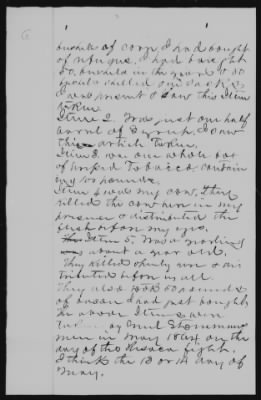 bushels of corn, I had bought
of refugee. I had bought
50 bushels in the year & 20
bushels shelled one sack is
I was present & saw this Item
taken
Item 2. Was just one half
barrel of Syrup. I saw
this article taken.
Item 3. was one whole box
of striped Tobacco contain
ing 100 pounds.
Item 4 was my cow. They
killed the cow in my
presence & distributed the
flesh before my eyes.
Item 5. Was a yearling
about a year old.
They killed and
tributed before us all
They also took 50 pounds
of bacon I had just bought
The above Items were
taken by Genl Stoneman's
men in May 1864 on the
day of the Resaca fight.
I think the 13 or 14 day of
May.